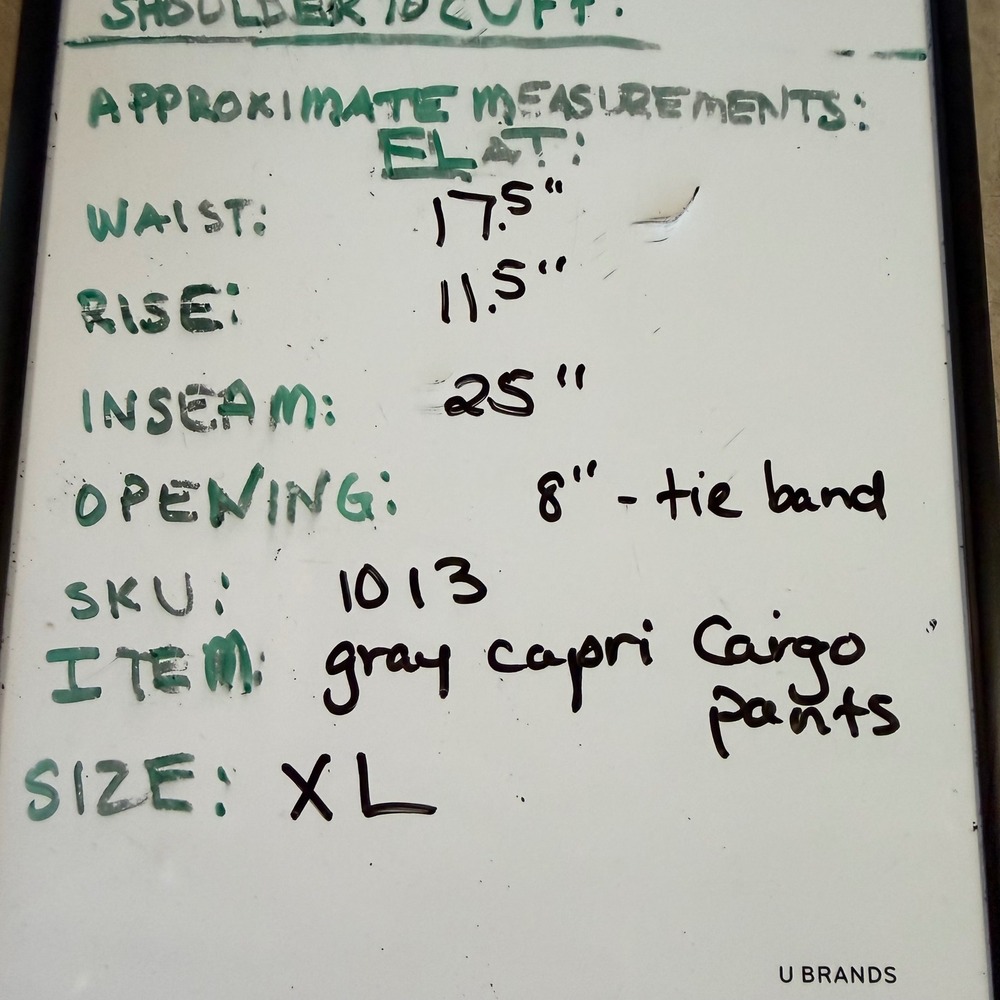 SHOULDER TO CUFF:
APPROXIMATE MEASUREMENTS:
FLAT:
WAIST: 17.5"
RISE: 11.5"
INSEAM: 25"
OPENING: 8" - tie band
SKU: 1013
ITEM: gray capri Cargo
pants
SIZE: XL
U BRANDS